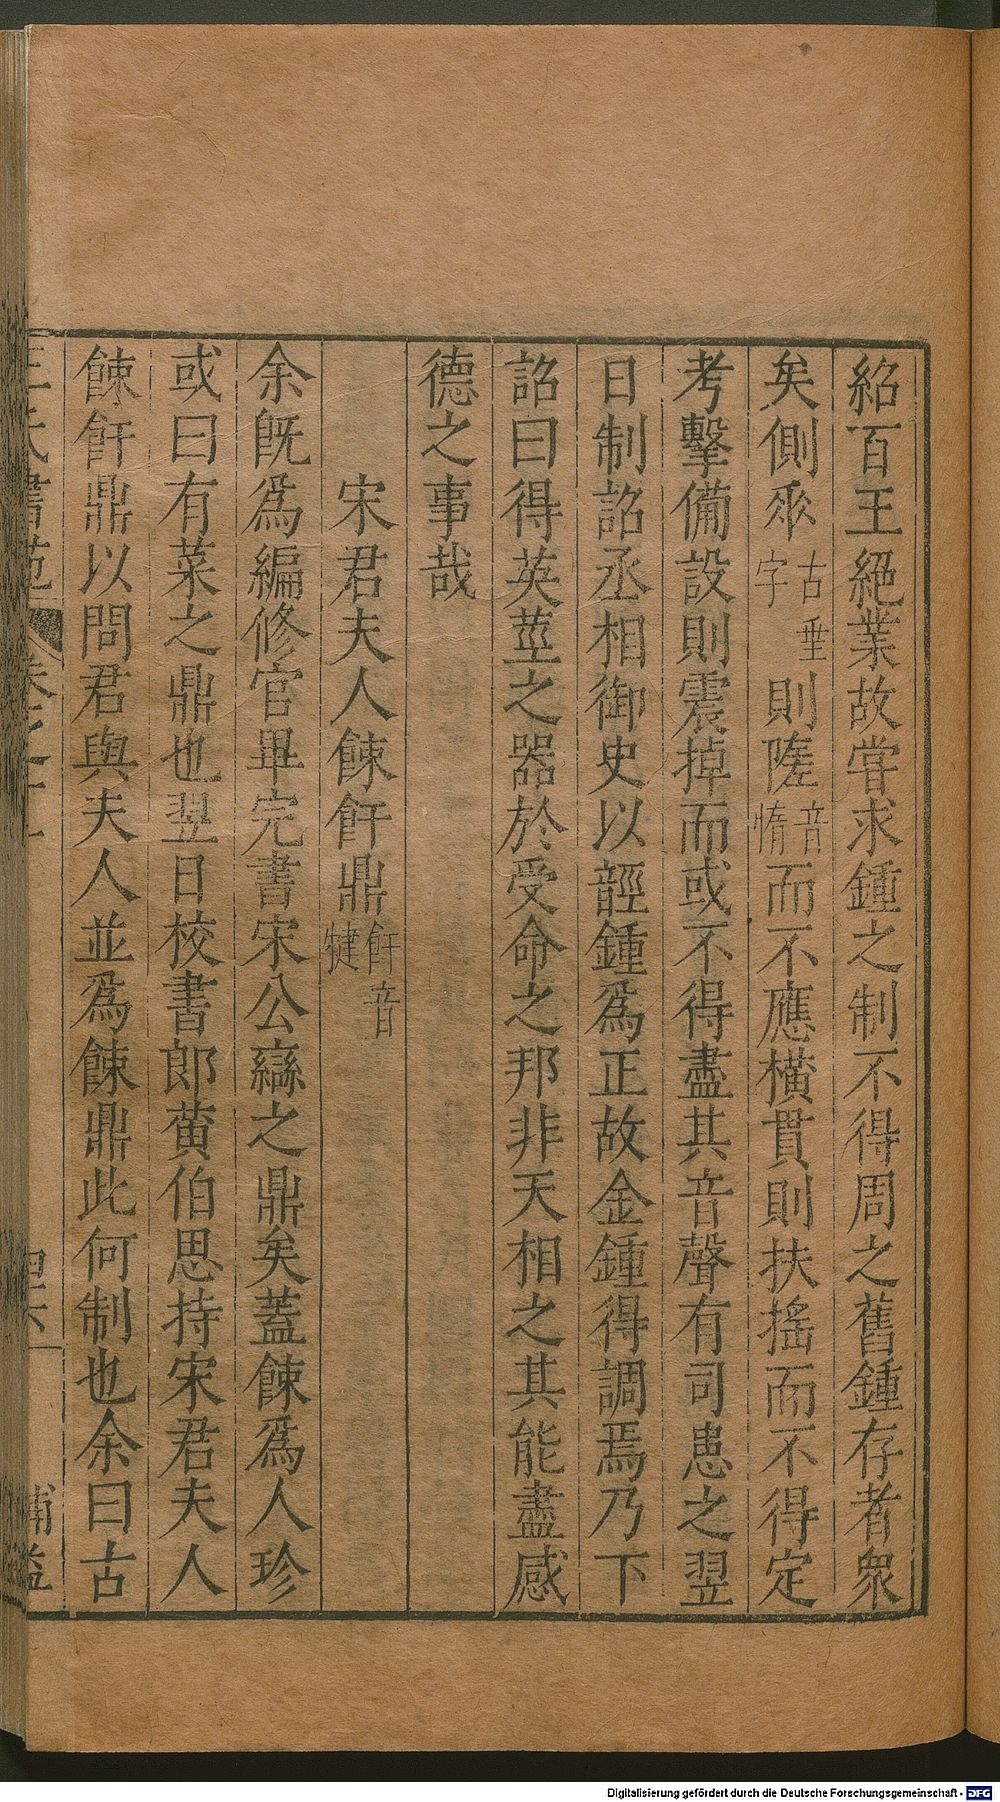 紹百王絕業故嘗求鍾之制不得周之舊鍾存者衆
矣側𠂹古垂字則隓音惰而不應橫貫則扶搖而不得定
考擊備設則震掉而或不得盡其音聲有司患之翌
日制詔丞相御史以䪫鍾爲正故金鍾得調焉乃下
詔曰得英莖之器於受命之邦非天相之其能盡感
德之事哉
宋君夫人餗飦鼎飦音犍
余旣爲編修官畢完書宋公䜌之鼎矣蓋餗爲人珍
或曰有菜之鼎也翌日校書郎黄伯思持宋君夫人
餗飦鼎以問君與夫人並爲餗鼎此何制也余曰古
王氏書苑 卷之十二 四六 補益
Digitalisierung gefördert durch die Deutsche Forschungsgemeinschaft - DFG